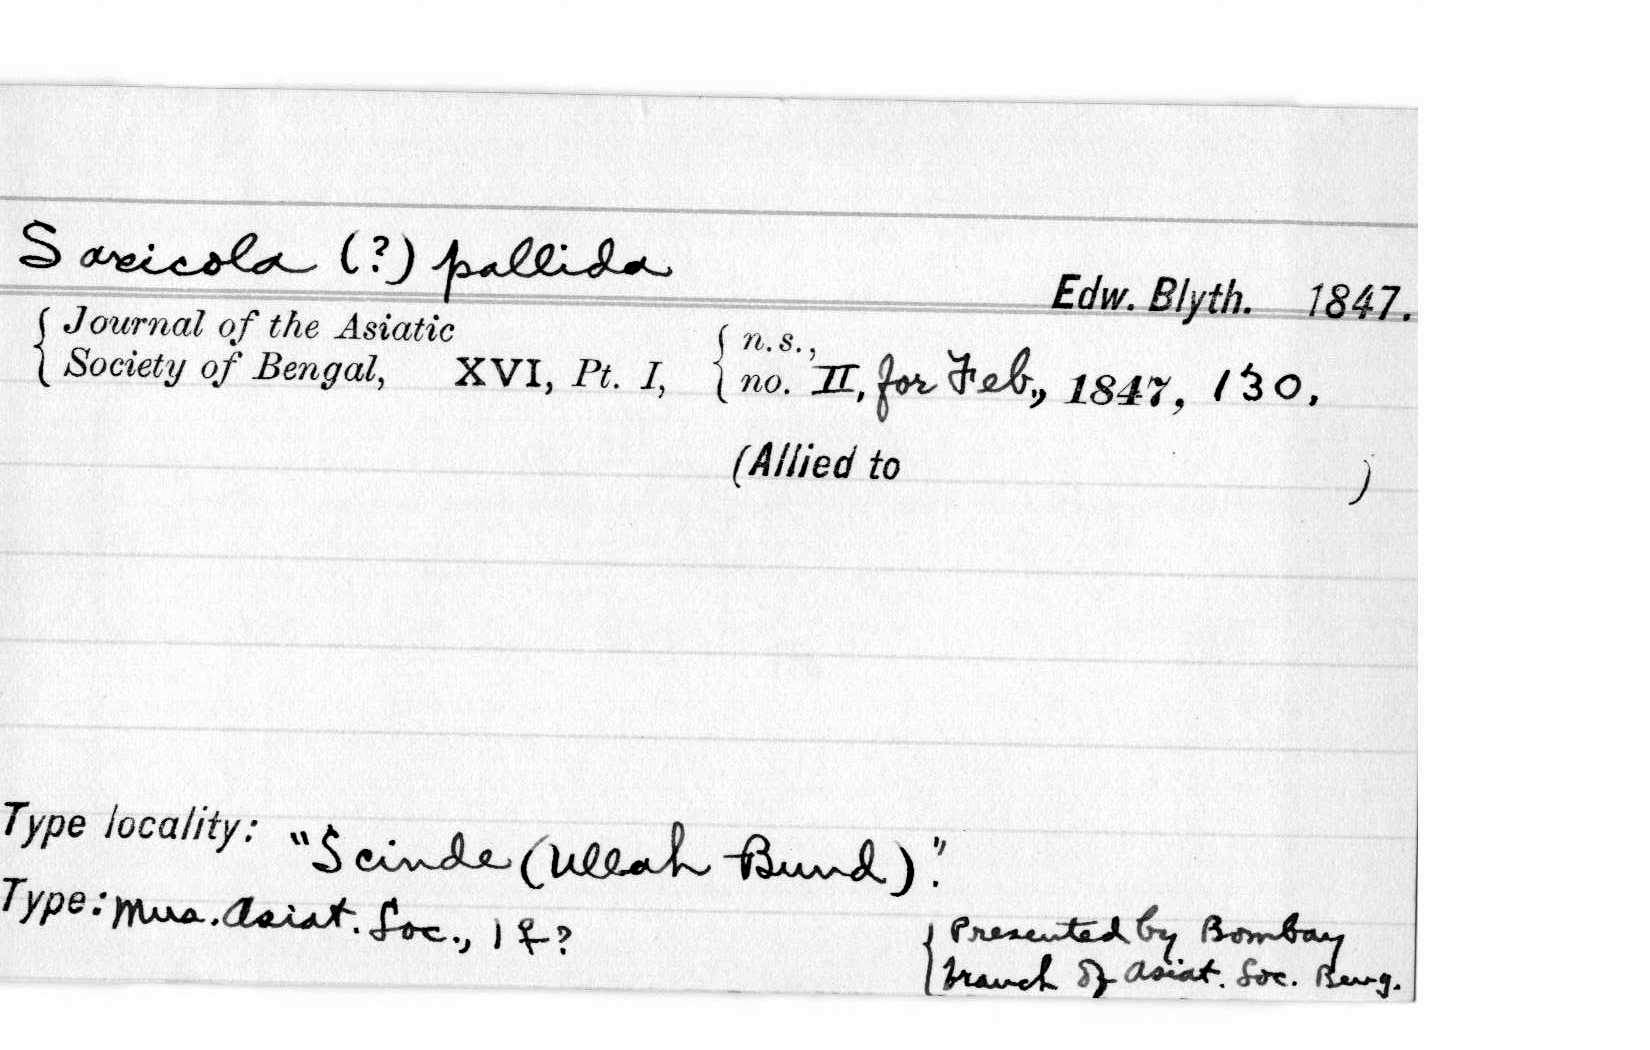 Saxicola (?) pallida
Edw. Blyth. 1847.
Journal of the Asiatic
Society of Bengal, XVI, Pt. I,
n.s.,
no. II, for Feb., 1847, 130.
(Allied to )
Type locality: "Scinde (Ullah Bund)."
Type: Mus. Asiat. Soc., 1 ♀?
Presented by Bombay
branch of Asiat. Soc. Beng.